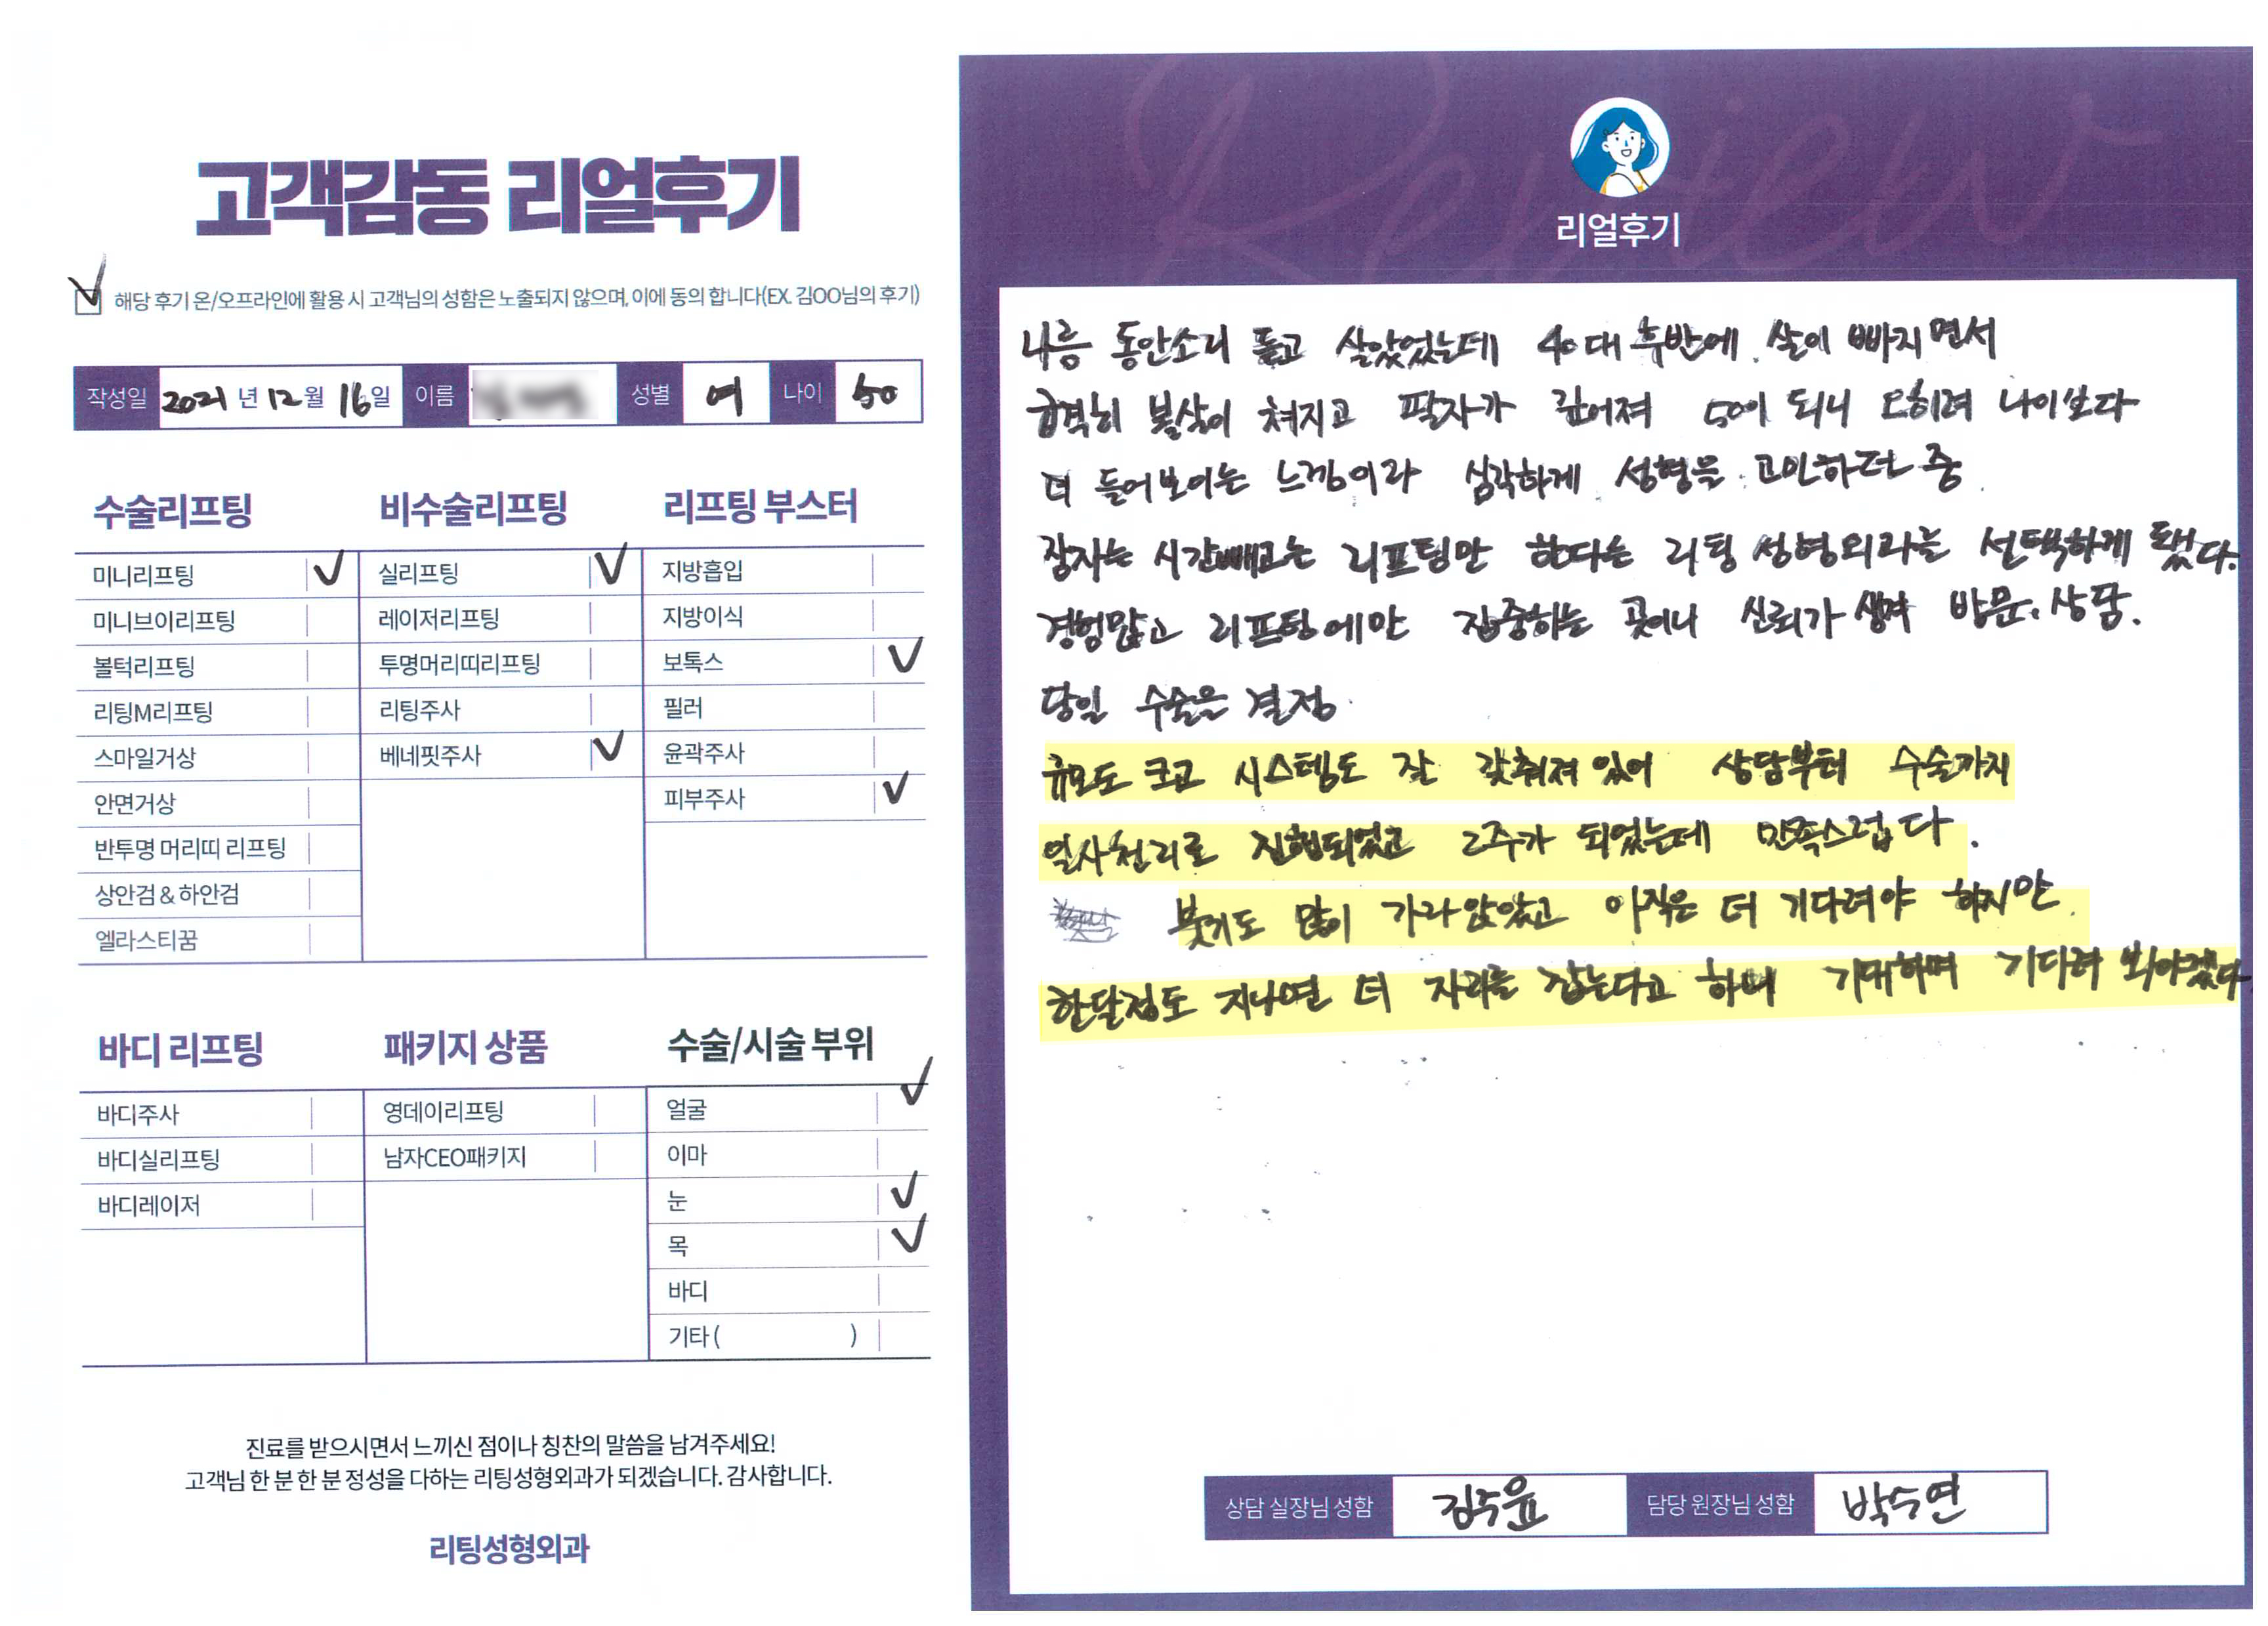 고객감동 리얼후기
✓ 해당 후기 온/오프라인에 활용 시 고객님의 성함은 노출되지 않으며, 이에 동의 합니다(EX. 김OO님의 후기)
작성일 2021 년 12 월 16 일 이름 성별 여 나이 50
수술리프팅
미니리프팅 ✓
미니브이리프팅
볼턱리프팅
리팅M리프팅
스마일거상
안면거상
반투명 머리띠 리프팅
상안검 & 하안검
엘라스티꿈
비수술리프팅
실리프팅 ✓
레이저리프팅
투명머리띠리프팅
리팅주사
베네핏주사 ✓
리프팅 부스터
지방흡입
지방이식
보톡스 ✓
필러
윤곽주사
피부주사 ✓
바디 리프팅
바디주사
바디실리프팅
바디레이저
패키지 상품
영데이리프팅
남자CEO패키지
수술/시술 부위
얼굴 ✓
이마
눈 ✓
목 ✓
바디
기타 ( )
진료를 받으시면서 느끼신 점이나 칭찬의 말씀을 남겨주세요!
고객님 한 분 한 분 정성을 다하는 리팅성형외과가 되겠습니다. 감사합니다.
리팅성형외과
Review
리얼후기
나름 동안소리 듣고 살았었는데 40대 후반에 살이 빠지면서
급격히 볼살이 쳐지고 팔자가 깊어져 50이 되니 오히려 나이보다
더 들어보이는 느낌이라 심각하게 성형을 고민하던 중
잠자는 시간빼고는 리프팅만 한다는 리팅성형외과를 선택하게 됐다.
경험많고 리프팅에만 집중하는 곳이니 신뢰가 생겨 방문, 상담.
당일 수술을 결정
규모도 크고 시스템도 잘 갖춰져 있어 상담부터 수술까지
일사천리로 진행되었고 2주가 되었는데 만족스럽다.
붓기도 많이 가라앉았고 아직은 더 기다려야 하지만
한달정도 지나면 더 자리를 잡는다고 하니 기대하며 기다려 봐야겠다
상담 실장님 성함 김주윤 담당 원장님 성함 박수연